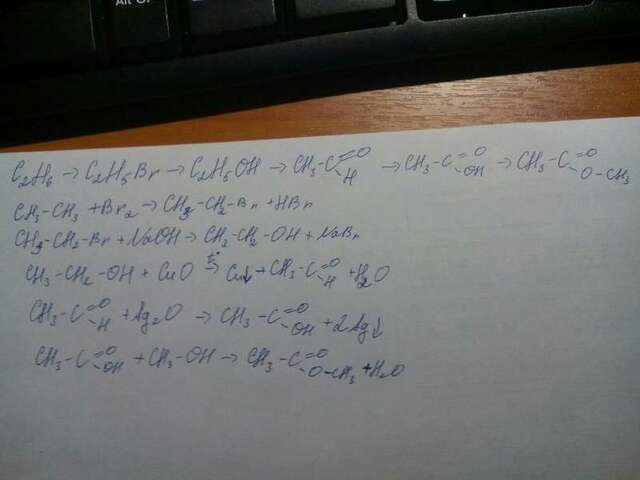 Alt Gr
C₂H₆ → C₂H₅Br → C₂H₅OH → CH₃-C(=O)H → CH₃-C(=O)OH → CH₃-C(=O)O-CH₃
CH₃-CH₃ + Br₂ → CH₃-CH₂-Br + HBr
CH₃-CH₂-Br + NaOH → CH₃-CH₂-OH + NaBr
CH₃-CH₂-OH + CuO →t° Cu↓ + CH₃-C(=O)H + H₂O
CH₃-C(=O)H + Ag₂O → CH₃-C(=O)OH + 2Ag↓
CH₃-C(=O)OH + CH₃-OH → CH₃-C(=O)O-CH₃ + H₂O